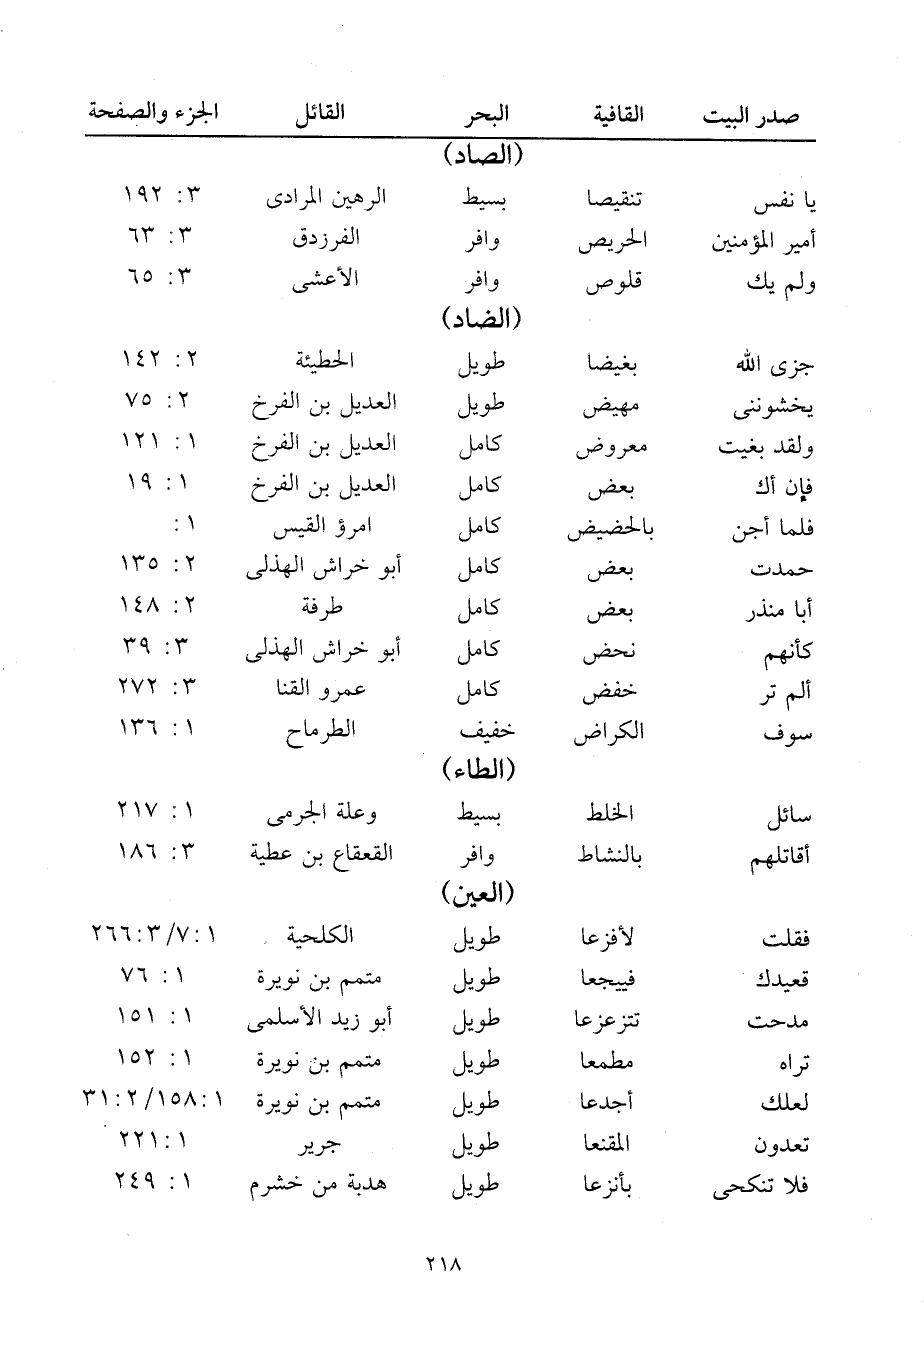 صدر البيت القافية البحر القائل الجزء والصفحة
(الصاد)
يا نفس تنقيصا بسيط الرهين المرادى ٣: ١٩٢
أمير المؤمنين الحريص وافر الفرزدق ٣: ٦٣
ولم يك قلوص وافر الأعشى ٣: ٦٥
(الضاد)
جزى الله بغيضا طويل الحطيئة ٢: ١٤٢
يخشوننى مهيض طويل العديل بن الفرخ ٢: ٧٥
ولقد بغيت معروض كامل العديل بن الفرخ ١: ١٢١
فإن أك بعض كامل العديل بن الفرخ ١: ١٩
فلما أجن بالحضيض كامل امرؤ القيس ١:
حمدت بعض كامل أبو خراش الهذلى ٢: ١٣٥
أبا منذر بعض كامل طرفة ٢: ١٤٨
كأنهم نحض كامل أبو خراش الهذلى ٣: ٣٩
ألم تر خفض كامل عمرو القنا ٣: ٢٧٢
سوف الكراض خفيف الطرماح ١: ١٣٦
(الطاء)
سائل الخلط بسيط وعلة الجرمى ١: ٢١٧
أقاتلهم بالنشاط وافر القعقاع بن عطية ٣: ١٨٦
(العين)
فقلت لأفزعا طويل الكلحية ١: ٧/ ٣: ٢٦٦
قعيدك فييجعا طويل متمم بن نويرة ١: ٧٦
مدحت تتزعزعا طويل أبو زيد الأسلمى ١: ١٥١
تراه مطمعا طويل متمم بن نويرة ١: ١٥٢
لعلك أجدعا طويل متمم بن نويرة ١: ١٥٨/ ٢: ٣١
تعدون المقنعا طويل جرير ١: ٢٢١
فلا تنكحى بأنزعا طويل هدبة من خشرم ١: ٢٤٩
٢١٨